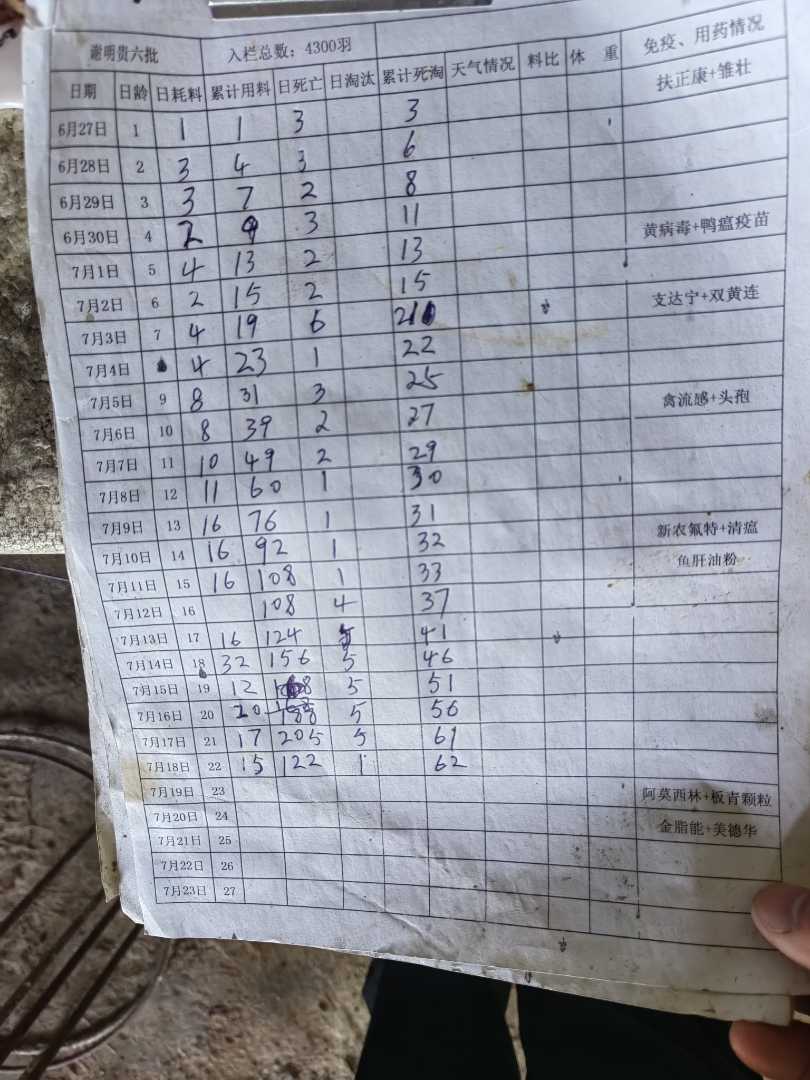 谢明贵六批 入栏总数：4300羽
日期 日龄 日耗料 累计用料 日死亡 日淘汰 累计死淘 天气情况 料比 体 重 免疫、用药情况
6月27日 1 1 1 3 3 扶正康+雏壮
6月28日 2 3 4 3 6
6月29日 3 3 7 2 8
6月30日 4 2 9 3 11
7月1日 5 4 13 2 13 黄病毒+鸭瘟疫苗
7月2日 6 2 15 2 15
7月3日 7 4 19 6 21 支达宁+双黄连
7月4日 4 23 1 22
7月5日 9 8 31 3 25
7月6日 10 8 39 2 27 禽流感+头孢
7月7日 11 10 49 2 29
7月8日 12 11 60 1 30
7月9日 13 16 76 1 31
7月10日 14 16 92 1 32 新农氟特+清瘟
7月11日 15 16 108 1 33 鱼肝油粉
7月12日 16 108 4 37
7月13日 17 16 124 41
7月14日 18 32 156 5 46
7月15日 19 12 5 51
7月16日 20 20 188 5 56
7月17日 21 17 205 5 61
7月18日 22 15 122 1 62
7月19日 23 阿莫西林+板青颗粒
7月20日 24 金脂能+美德华
7月21日 25
7月22日 26
7月23日 27